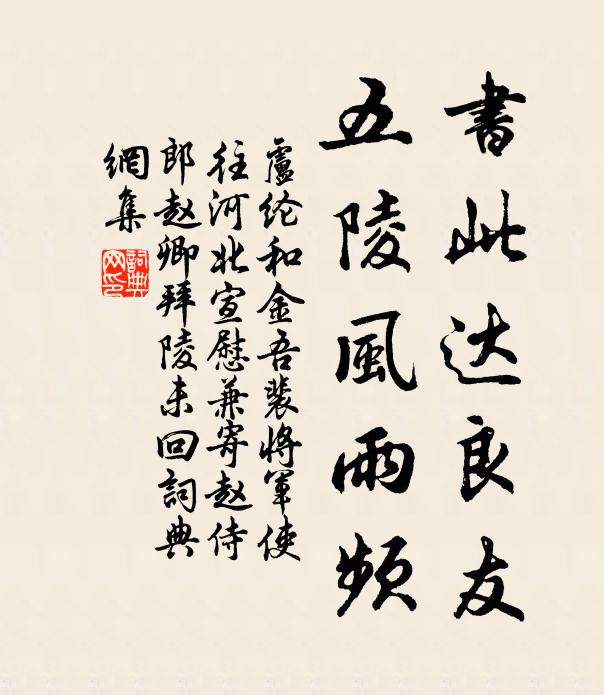 書此达良友
五陵風雨頻
盧纶和金吾裴将軍使
往河北宣慰兼寄赵侍
郎赵卿拜陵未回詞典
網集
詞典網印